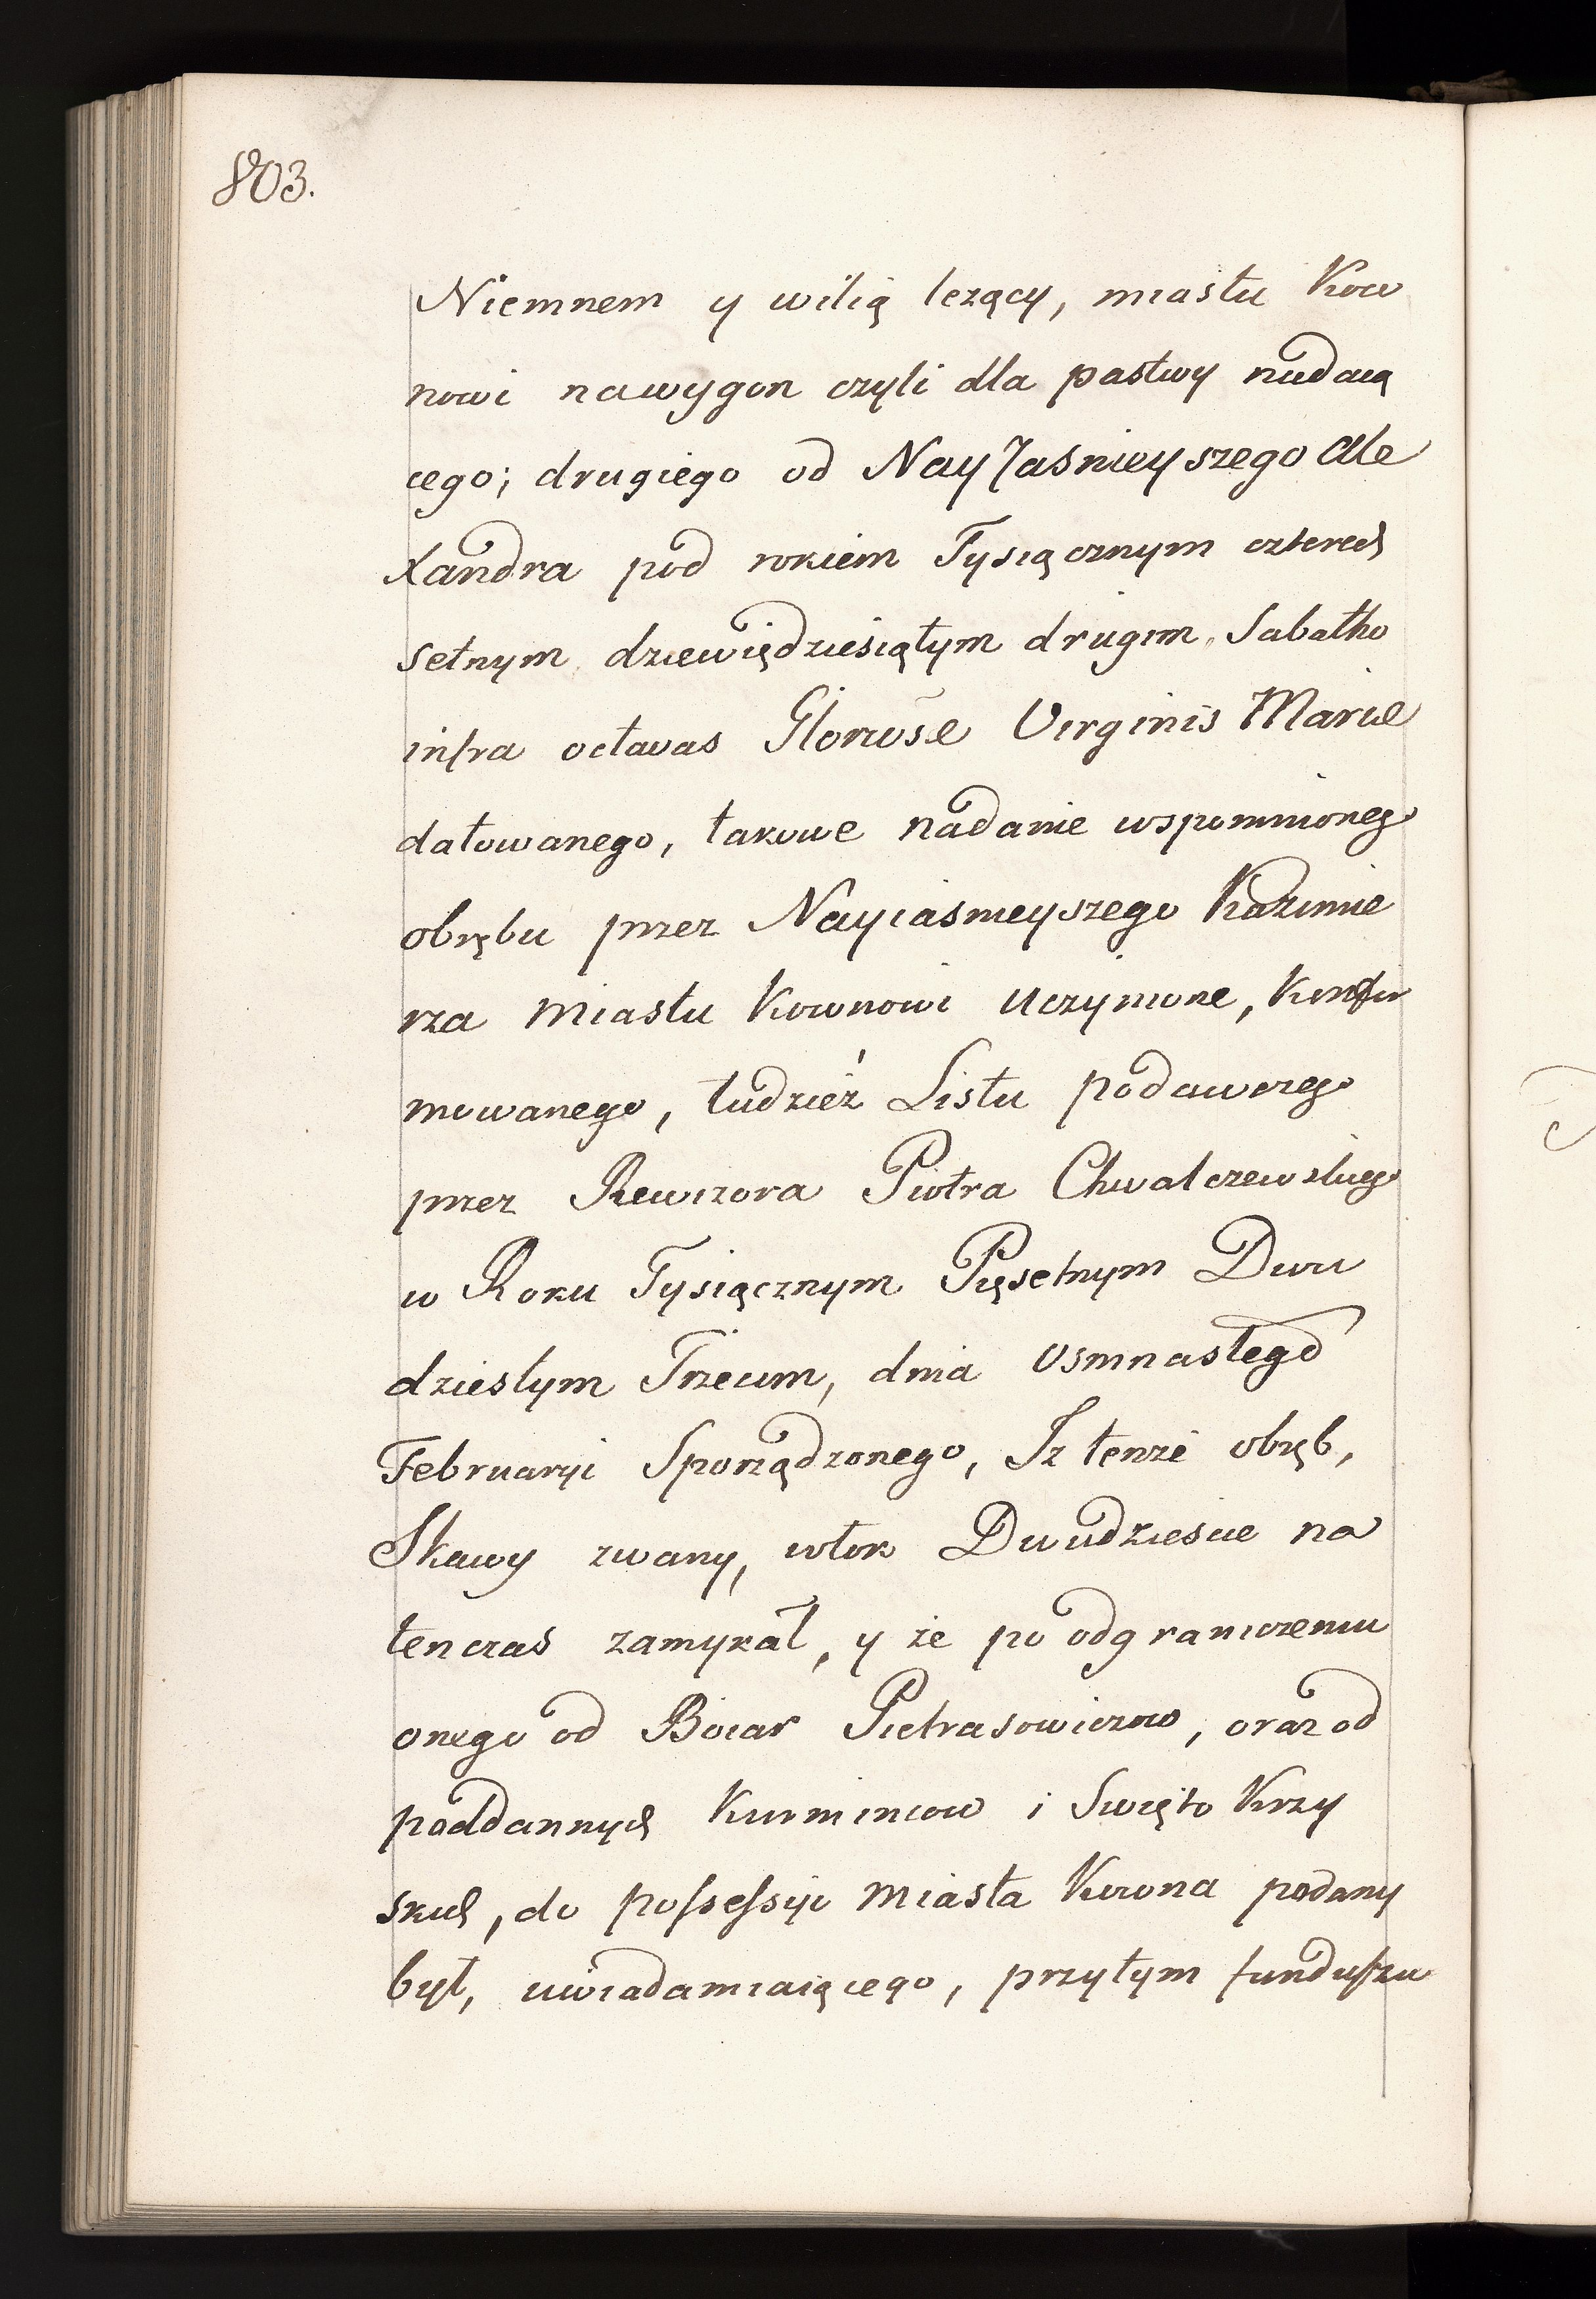 803.
Niemnem y wilią lezący, miastu Kow
nowi nawygon czyli dla pastwy nadaią
cego; drugiego od NayJasnieyszego Ale
xandra pod rokiem Tysiącznym czterech
setnym dziewiędziesiątym drugim, Sabatho
infra octavas Gloriose Virginis Marie
datowanego, takowe nadanie wspomnioneg
obrębu przez Nayiasnieyszego Kazimie
rza miastu Kownowi uczynione, konfir
mowanego, tudzież Listu podawczego
przez Rewizora Piotra Chwalczewskieg
w Roku Tysiącznym Pięsetnym Dwu
dziestym Trzecim, dnia Osmnastego
Februaryi Sporządzonego, Iz tenże obręb,
Skawy zwany, włok Dwudziescie na
tenczas zamykał, y że po odgraniczeniu
onego od Boiar Pietrasowiczow, oraz od
poddannych Kurmincow i Swięto Krzy
skich, do possessyi miasta Kowna podany
był, uwiadamiaiącego, przytym funduszu